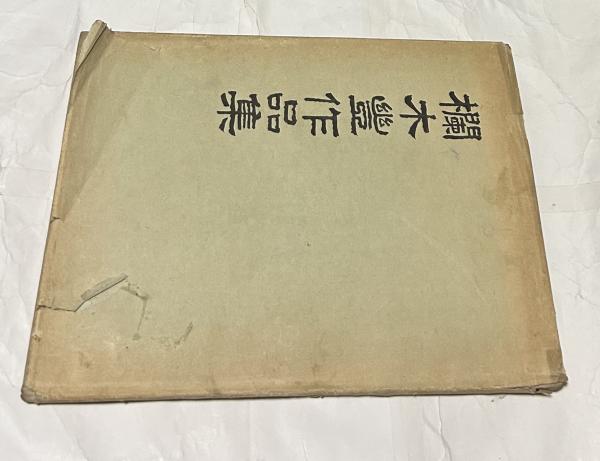 欄木作品集